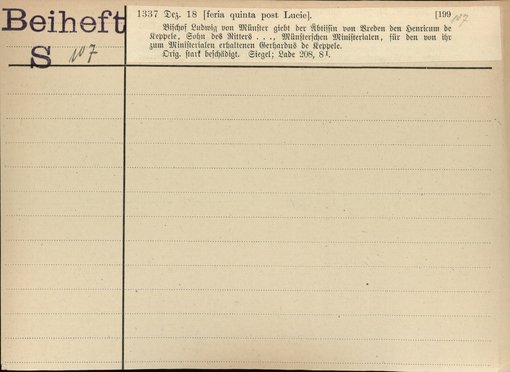 Beiheft
S 107
1337 Dez. 18 [feria quinta post Lucie]. [199 107
Bischof Ludwig von Münster giebt der Äbtissin von Vreden den Henricum de
Keppele, Sohn des Ritters . . ., Münsterschen Ministerialen, für den von ihr
zum Ministerialen erhaltenen Gerhardus de Keppele.
Orig. stark beschädigt. Siegel; Lade 208, 8